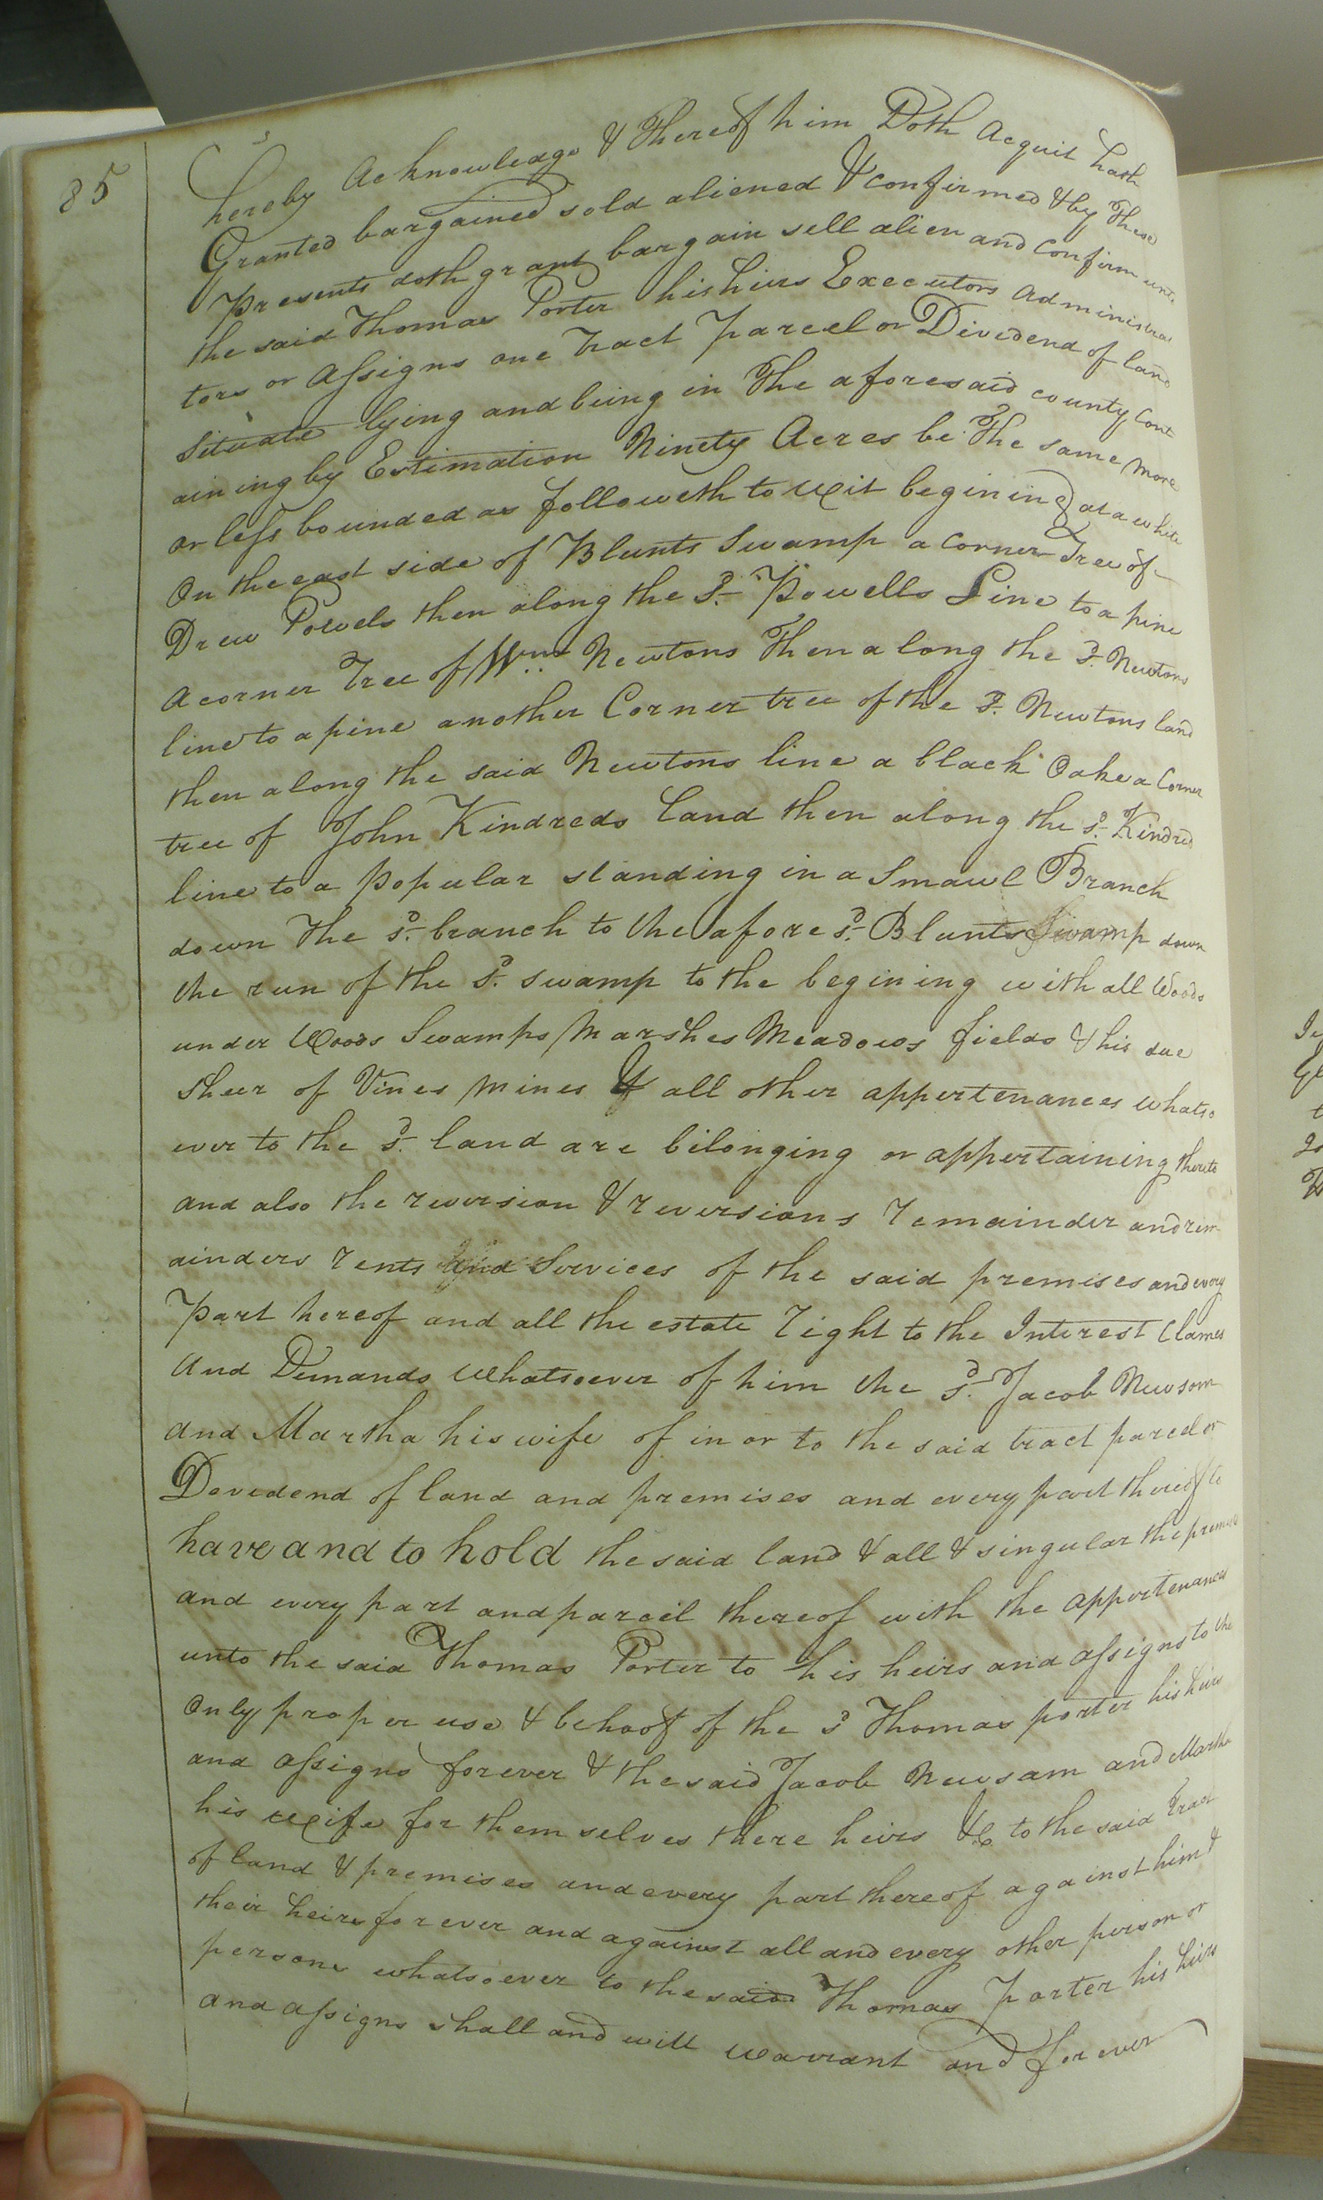 85
hereby acknowledge & thereof him Doth acquit hath
Granted bargained sold aliened & confirmed & by These
presents doth grant bargain sell alien and confirm unto
the said Thomas Porter his hiers Executors administra
tors or assigns one tract parcel or Dividend of land
situate lying and being in The aforesaid county cont
aining by Estimation Ninety Acres be The same more
or less bounded as followeth to wit begining at a white
On the east side of Blunts Swamp a corner Tree of
Drew Powels then along the sd. Powells Line to a pine
a corner Tree of Wm Newtons Then along the sd. Newtons
line to a pine another Corner tree of the sd. Newtons land
then along the said Newtons line a black Oake a Corner
tree of John Kindreds land then along the sd. Kindred
line to a popular standing in a Smawl Branch
down The sd. branch to the afore sd. Blunts Swamp down
the run of the sd. swamp to the begining with all Woods
under Woods Swamps Marshes Meadows fields & his due
sheer of Vines mines & all other appertenances whatso
ever to the sd. land are bilonging or appertaining thereto
and also the reversion & reversions remainder and rem
ainders rents and Services of the said premises and every
part hereof and all the estate right to the Interest Clames
and Demands whatsoever of him the sd. Jacob Newsom
and Martha his wife of in or to the said tract parcel or
Devedend of land and premises and every part thereof to
have and to hold the said land & all & singular the premises
and every part and parcil thereof with the appertenances
unto the said Thomas Porter to his heirs and assigns to the
only proper use & behoof of the sd Thomas porter his heirs
and assigns forever & the said Jacob Newsam and Martha
his wife for them selves there heirs &c to the said tract
of land & premises and every part thereof against him &
their heirs for ever and against all and every other person or
persons whatsoever to the said Thomas Porter his heirs
and assigns shall and will warrant and for ever